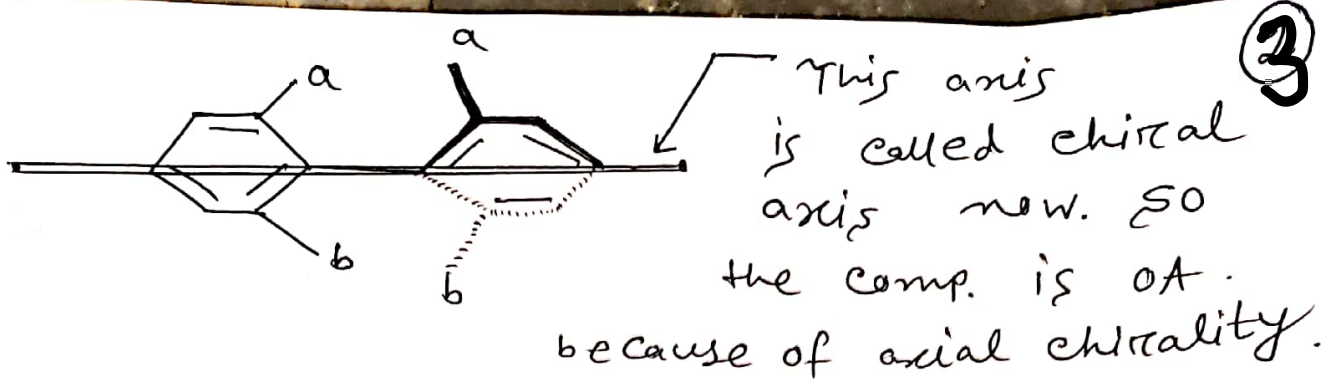 3
a
a
This axis
is called chiral
axis now. So
the comp. is OA.
because of axial chirality.
b
b